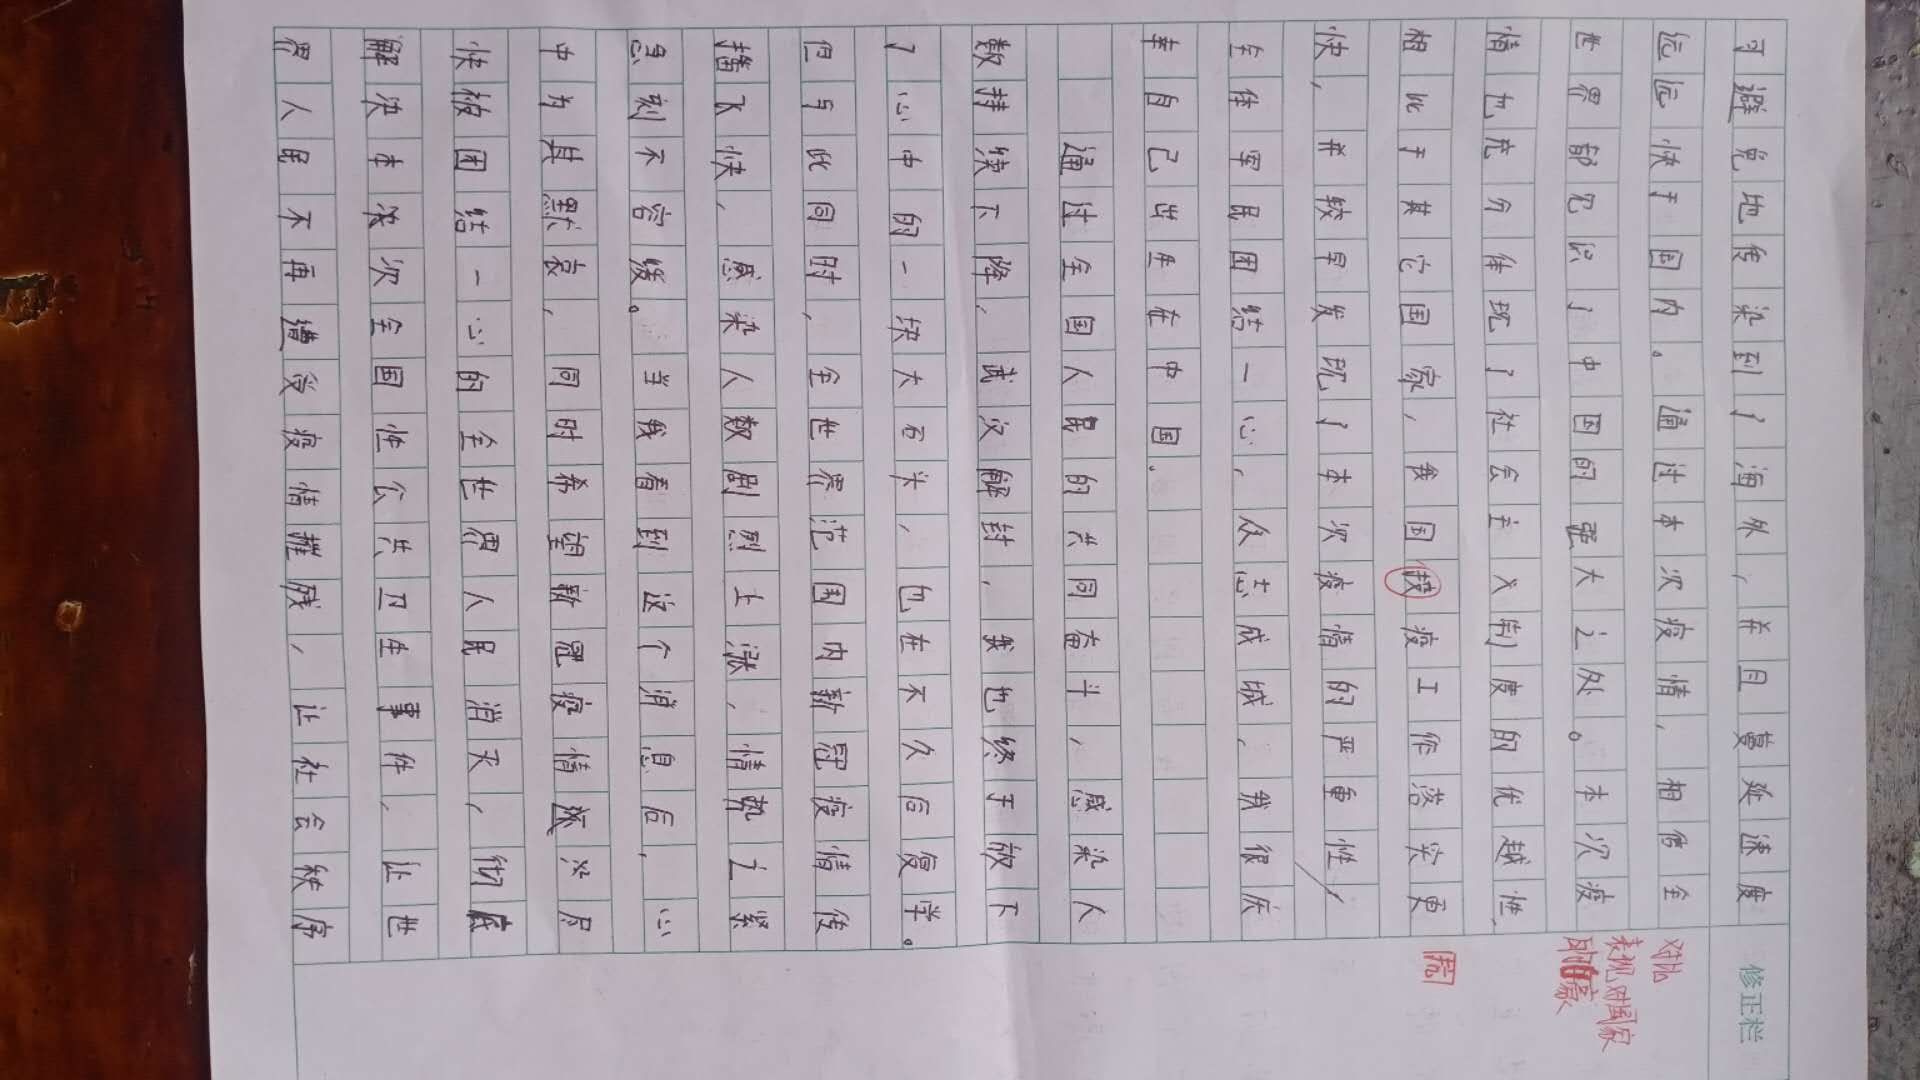 可避免地传染到了海外，并且蔓延速度
远远快于国内。通过本次疫情，相信全
世界都见识了中国的强大之处。本次疫
情也充分体现了社会主义制度的优越性
相比于其它国家，我国疫工作落实更
快，并较早发现了本次疫情的严重性
全体军民团结一心，众志成城，我很庆
幸自己出生在中国。
通过全国人民的共同奋斗，感染人
数持续下降，武汉解封，我也终于放下
了心中的一块大石头，也在不久后复学。
但与此同时，全世界范围内新冠疫情传
播飞快，感染人数剧烈上涨，情势之紧
急刻不容缓。当我看到这个消息后，心
中为其默哀，同时希望新冠疫情必尽
快被团结一心的全世界人民消灭，彻底
解决本次全国性公共卫生事件，让世
界人民不再遭受疫情摧残，让社会秩序
修正栏
对比
表现对国家